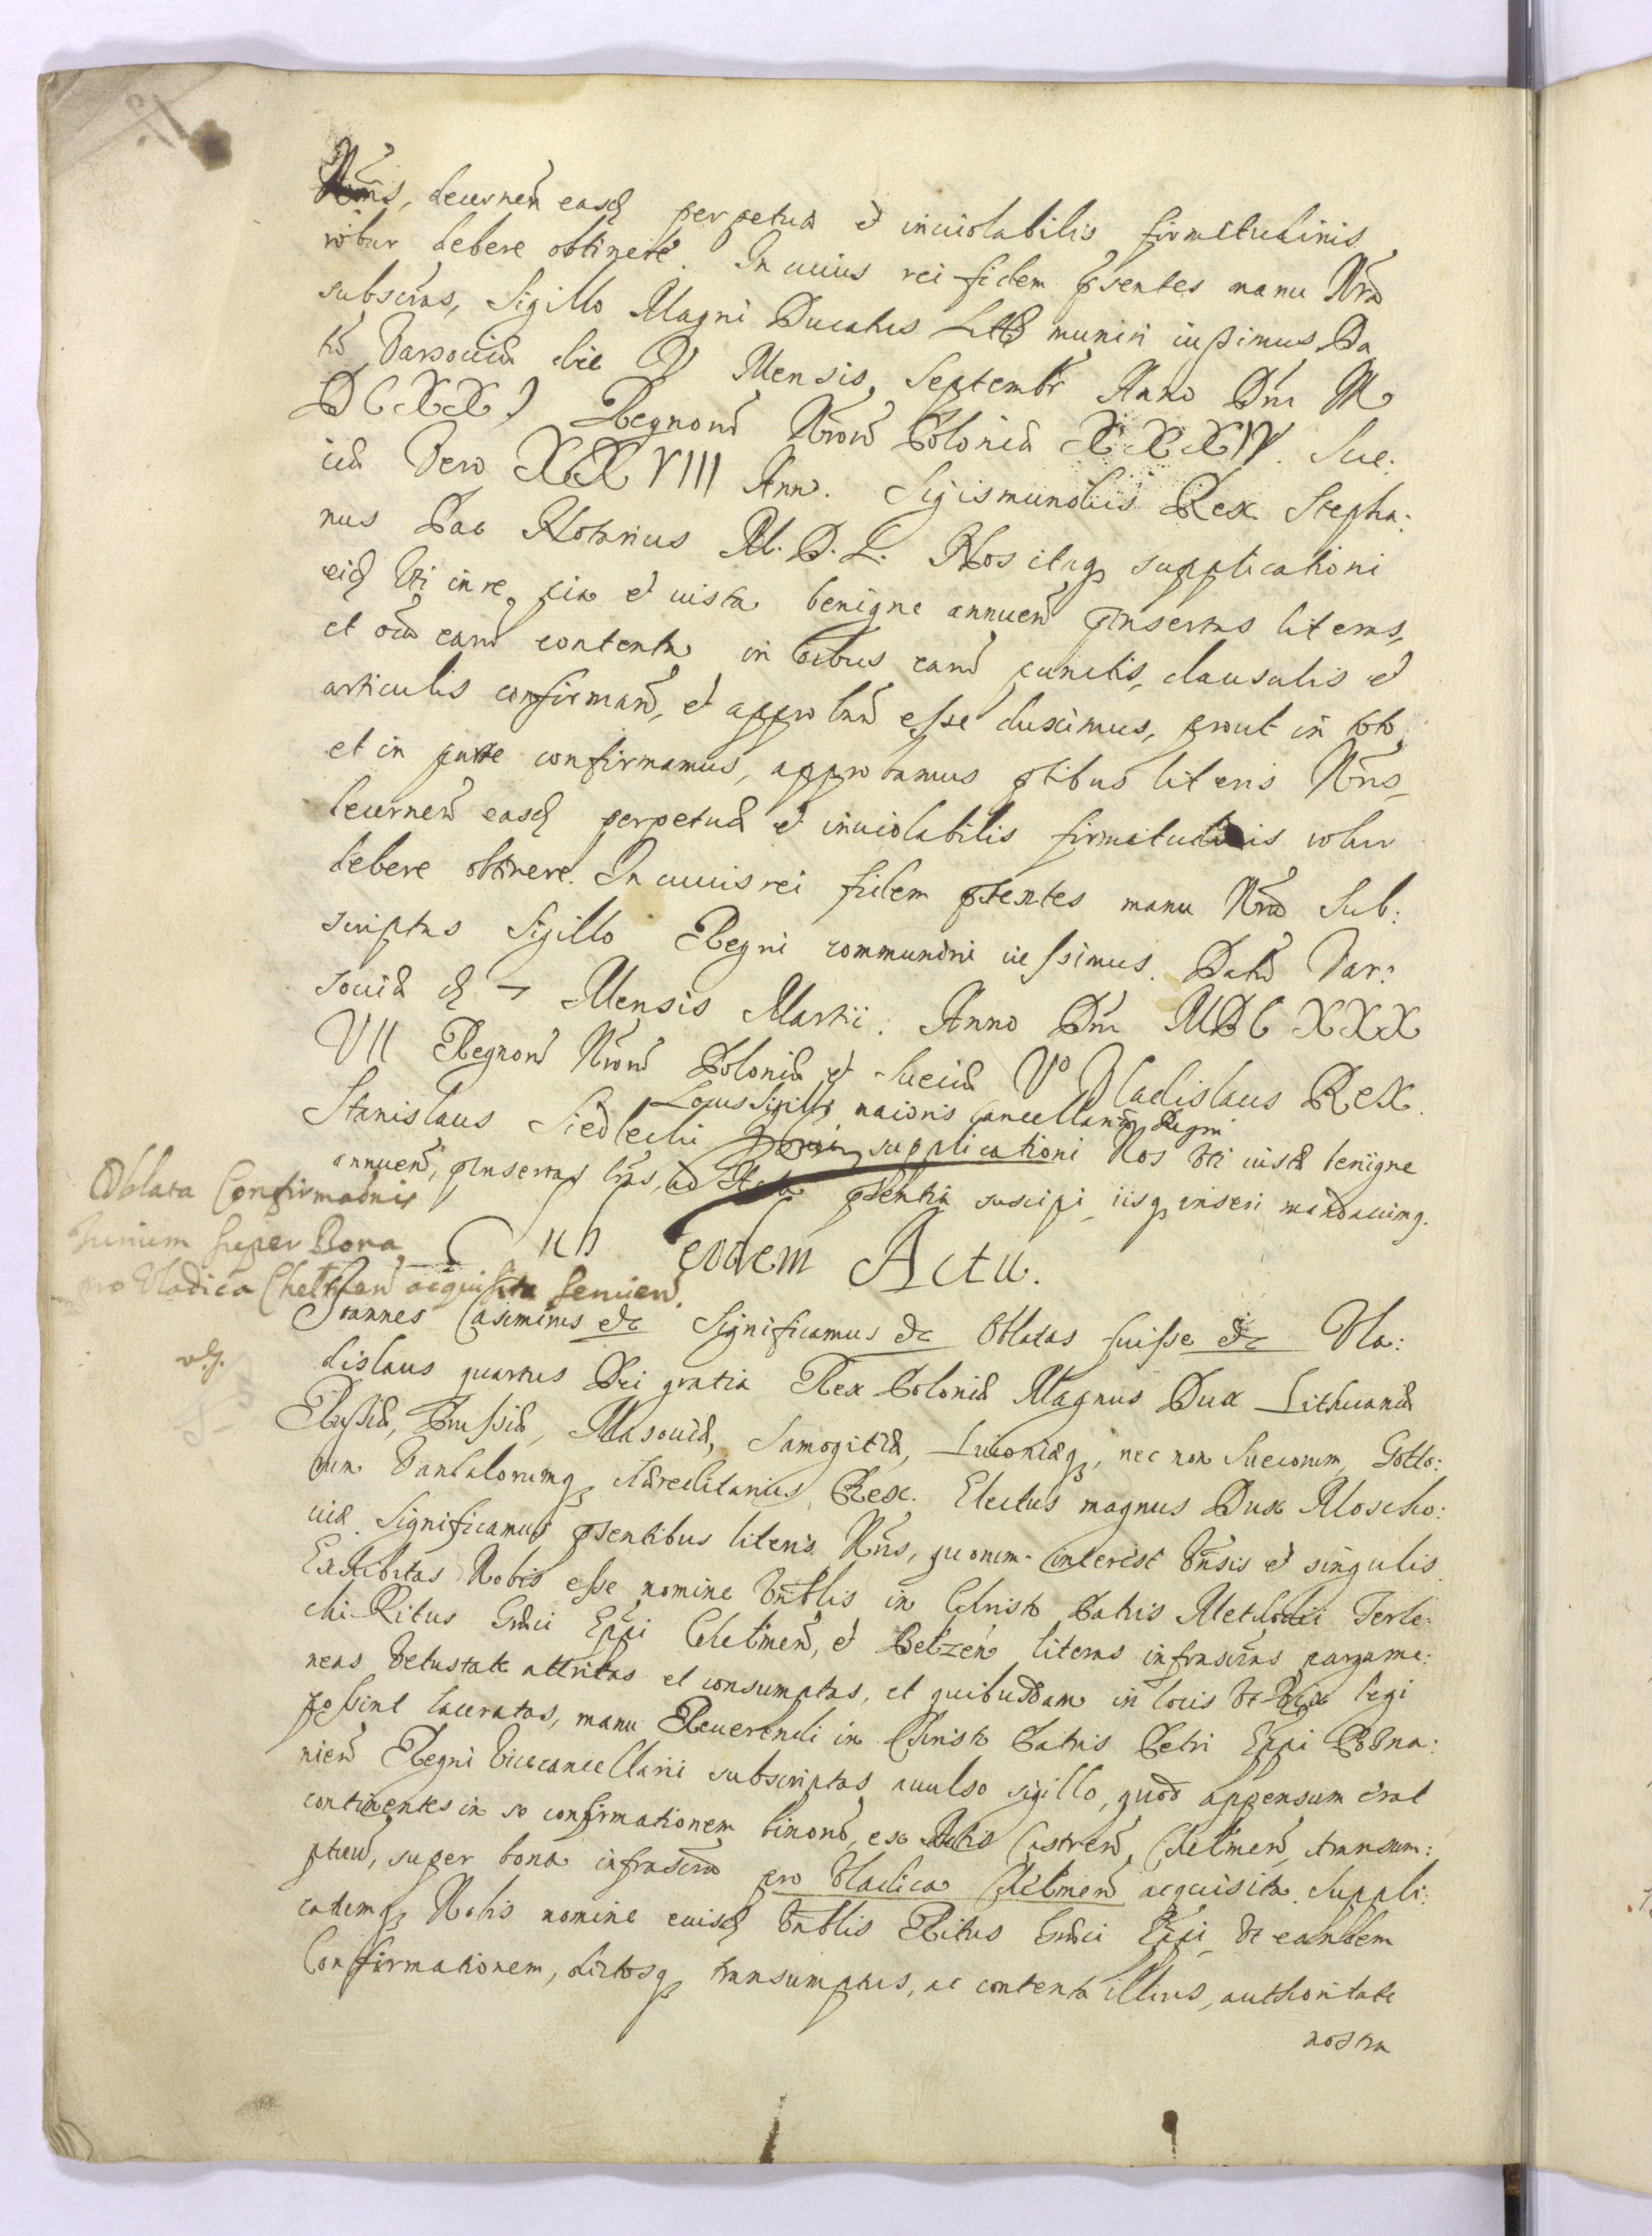 Nris, decernen easq perpetuæ et inuiolabilis firmitudinis
robur debere obtinere. In cuius rei fidem pntes manu Nra
subscras, Sigillo Magni Ducatus Litt muniri iussimus. Da
tu Varsouiæ die V Mensis Septembr Anno Dni M
DCXXI Regnoru Nroru Poloniæ XXXIV. Sue:
ciæ Vero XXVIII Ann. Sigismundus Rex Stepha:
nus Pac Notarius M. D. L. Nos itaq supplicationi
eiq Vti in re pia et iusta benigne annuen pinsertas literas,
et oia earu contenta in oibus earu punctis, clausulis et
articulis confirman, et approban esse duximus, prout in toto
et in parte confirmamus, approbamus ptibus literis Nris
decernen easq perpetuæ et inuiolabilis firmitudinis robur
debere obtinere. In cuius rei fidem psentes manu Nra Sub:
scriptas Sigillo Regni communiri iussimus. Datu Var:
souiæ Mensis Martii. Anno Dni MDCXXX
VII Regnoru Nroru Poloniæ et Sueciæ Vo Vladislaus Rex.
Locus Sigilli maioris Cancellariæ Regni
Stanislaus Siedlecki supplicationi Nos Vti iustæ benigne
annuen, pinsertas lras, ad Acta psentia suscipi iisq inseri mandauimq.
Oblata Confirmaonis
super Bona
pro Vladica Chelmen acquisita seruien.
eodem Actu.
Ioannes Casimirus etc Significamus etc Oblatas fuisse etc Vla:
dislaus quartus Dei gratia Rex Poloniæ Magnus Dux Lithuaniæ
Russiæ, Prussiæ, Masouiæ, Samogitiæ, Liuoniæq, nec non Suecorum, Gotto:
rum Vandalorumq hæreditarius Rex. Electus magnus Dux Moscho:
uiæ. Significamus psentibus literis Nris, quorum interest Vnisis et singulis.
Exhibitas Nobis esse nomine Vnblis in Christo Patris Methodii Terle:
cki Ritus Græci Eppi Chelmen, et Belzen literas infrascras pargame:
neas Vetustate attritas et consumptas, et quibusdam in locis Vt Vix legi
possint laceratas, manu Reuerendi in Christo Patris Petri Eppi Posna:
nien Regni Vicecancellarii subscriptas auulso sigillo, quod appensum erat
continentes in se confirmationem binoru, ex Actis Castren, Chelmen, transum:
ptuu, super bona infrascra pro Vladica Chelmen acquisita. Suppli:
catumq Nobis nomine eiusq Vnblis Ritus Græci Eppi, Vt eandem
Confirmationem, dictosq transumptus, ac contenta illius, authoritate
nostra